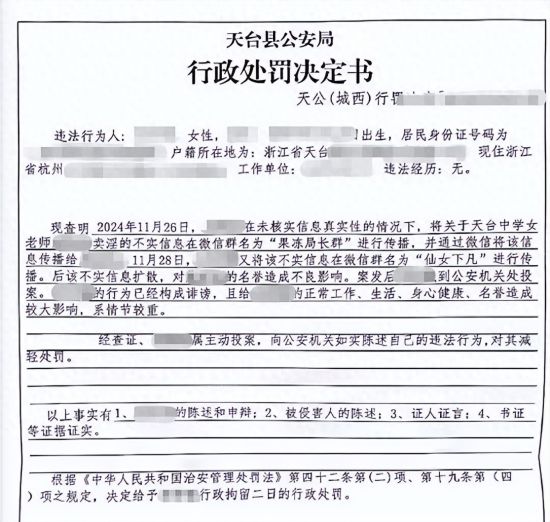 天台县公安局
行政处罚决定书
天公(城西)行罚
违法行为人: 女性, 出生,居民身份证号码为
户籍所在地为:浙江省天台 现住浙江
省杭州 工作单位: 违法经历:无。
现查明 2024年11月26日, 在未核实信息真实性的情况下,将关于天台中学女
老师 卖淫的不实信息在微信群名为“果冻局长群”进行传播,并通过微信将该信
息传播给 11月28日, 又将该不实信息在微信群名为“仙女下凡”进行传
播。后该不实信息扩散,对 的名誉造成不良影响。案发后 到公安机关处投
案。 的行为已经构成诽谤,且给 的正常工作、生活、身心健康、名誉造成
较大影响,系情节较重。
经查证、 属主动投案,向公安机关如实陈述自己的违法行为,对其减
轻处罚。
以上事实有1、 的陈述和申辩;2、被侵害人的陈述;3、证人证言;4、书证
等证据证实。
根据《中华人民共和国治安管理处罚法》第四十二条第(二)项、第十九条第(四
)项之规定,决定给予 行政拘留二日的行政处罚。